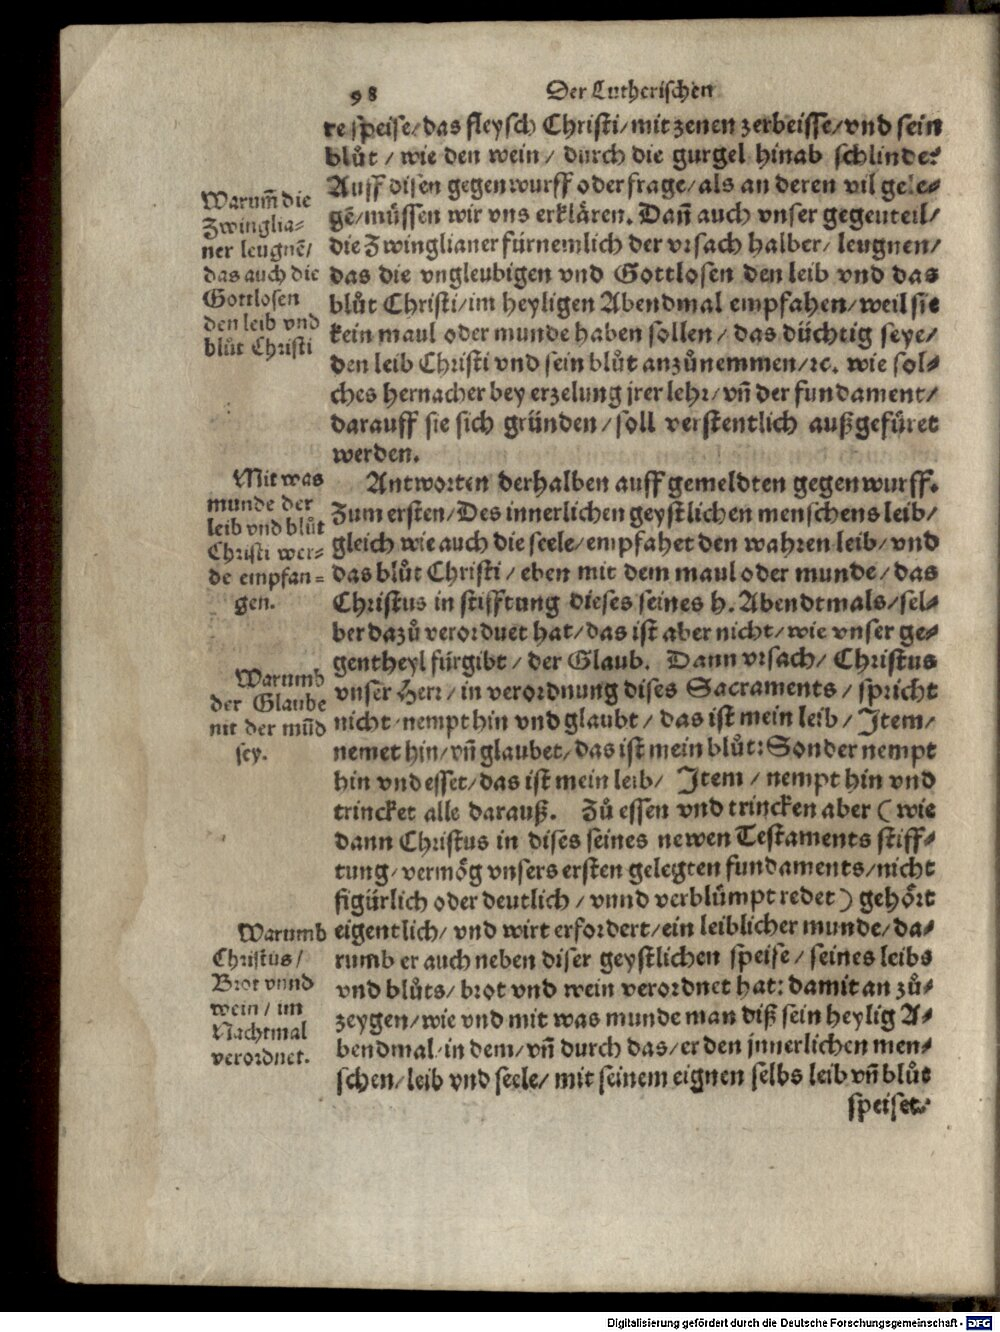 98 Der Lutherischen
re speise/das fleysch Christi/mit zenen zerbeisse/vnd sein
blůt / wie den wein / durch die gurgel hinab schlinde?
Auff disen gegenwurff oder frage/als an deren vil gele-
gē/müssen wir vns erklären. Dañ auch vnser gegenteil/
die Zwinglianer fürnemlich der vrsach halber/ leugnen/
das die vngleubigen vnd Gottlosen den leib vnd das
blůt Christi/im heyligen Abendmal empfahen/weil sie
kein maul oder munde haben sollen/ das düchtig seye/
den leib Christi vnd sein blůt anzůnemmen/ꝛc. wie sol-
ches hernacher bey erzelung jrer lehr/vñ der fundament/
darauff sie sich gründen/soll verstentlich außgefüret
werden.
Warum̄ die
Zwinglia-
ner leugnē/
das auch die
Gottlosen
den leib vnd
blůt Christi
Antworten derhalben auff gemeldten gegenwurff.
Zum ersten/Des innerlichen geystlichen menschens leib/
gleich wie auch die seele/empfahet den wahren leib/vnd
das blůt Christi / eben mit dem maul oder munde/das
Christus in stifftung dieses seines h. Abendtmals/sel-
ber dazů verordnet hat/das ist aber nicht/wie vnser ge-
gentheyl fürgibt / der Glaub. Dann vrsach/ Christus
vnser Herr / in verordnung dises Sacraments / spricht
nicht/nempt hin vnd glaubt / das ist mein leib / Item/
nemet hin/vñ glaubet/das ist mein blůt: Sonder nempt
hin vnd esset/das ist mein leib/ Item / nempt hin vnd
trincket alle darauß. Zů essen vnd trincken aber ( wie
dann Christus in dises seines newen Testaments stiff-
tung/vermög vnsers ersten gelegten fundaments/nicht
figürlich oder deutlich / vnnd verblümpt redet ) gehört
eigentlich/ vnd wirt erfordert/ein leiblicher munde/da-
rumb er auch neben diser geystlichen speise / seines leibs
vnd blůts/brot vnd wein verordnet hat: damit an zů-
zeygen/wie vnd mit was munde man diß sein heylig A-
bendmal/in dem/vñ durch das/er den jnnerlichen men-
schen/leib vnd seele/ mit seinem eignen selbs leib vñ blůt
speiset.
Mit was
munde der
leib vnd blůt
Christi wer-
de empfan-
gen.
Warumb
der Glaube
nit der mūd
sey.
Warumb
Christus/
Brot vnnd
wein / im
Nachtmal
verordnet.
Digitalisierung gefördert durch die Deutsche Forschungsgemeinschaft - DFG